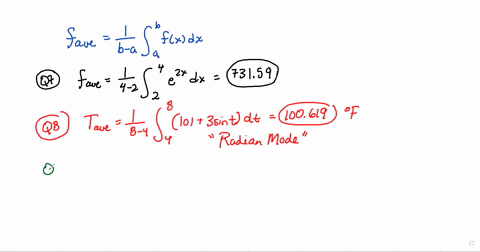 f_ave = 1/(b-a) ∫_a^b f(x) dx
Q7 f_ave = 1/(4-2) ∫_2^4 e^{2x} dx = 731.59
Q8 T_ave = 1/(8-4) ∫_4^8 (101 + 3 sin t) dt = 100.619 °F
"Radian Mode"